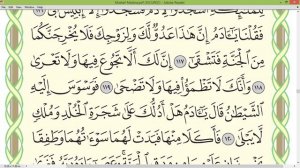 Mushaf Madina.pdf (SECURED) - Adobe Reader
فَقُلْنَا يَٰٓـَٔادَمُ إِنَّ هَٰذَا عَدُوٌّ لَّكَ وَلِزَوْجِكَ فَلَا يُخْرِجَنَّكُمَا
مِنَ ٱلْجَنَّةِ فَتَشْقَىٰٓ ١١٧ إِنَّ لَكَ أَلَّا تَجُوعَ فِيهَا وَلَا تَعْرَىٰ
١١٨ وَأَنَّكَ لَا تَظْمَؤُا۟ فِيهَا وَلَا تَضْحَىٰ ١١٩ فَوَسْوَسَ إِلَيْهِ
ٱلشَّيْطَٰنُ قَالَ يَٰٓـَٔادَمُ هَلْ أَدُلُّكَ عَلَىٰ شَجَرَةِ ٱلْخُلْدِ وَمُلْكٍ
لَّا يَبْلَىٰ ١٢٠ فَأَكَلَا مِنْهَا فَبَدَتْ لَهُمَا سَوْءَٰتُهُمَا وَطَفِقَا